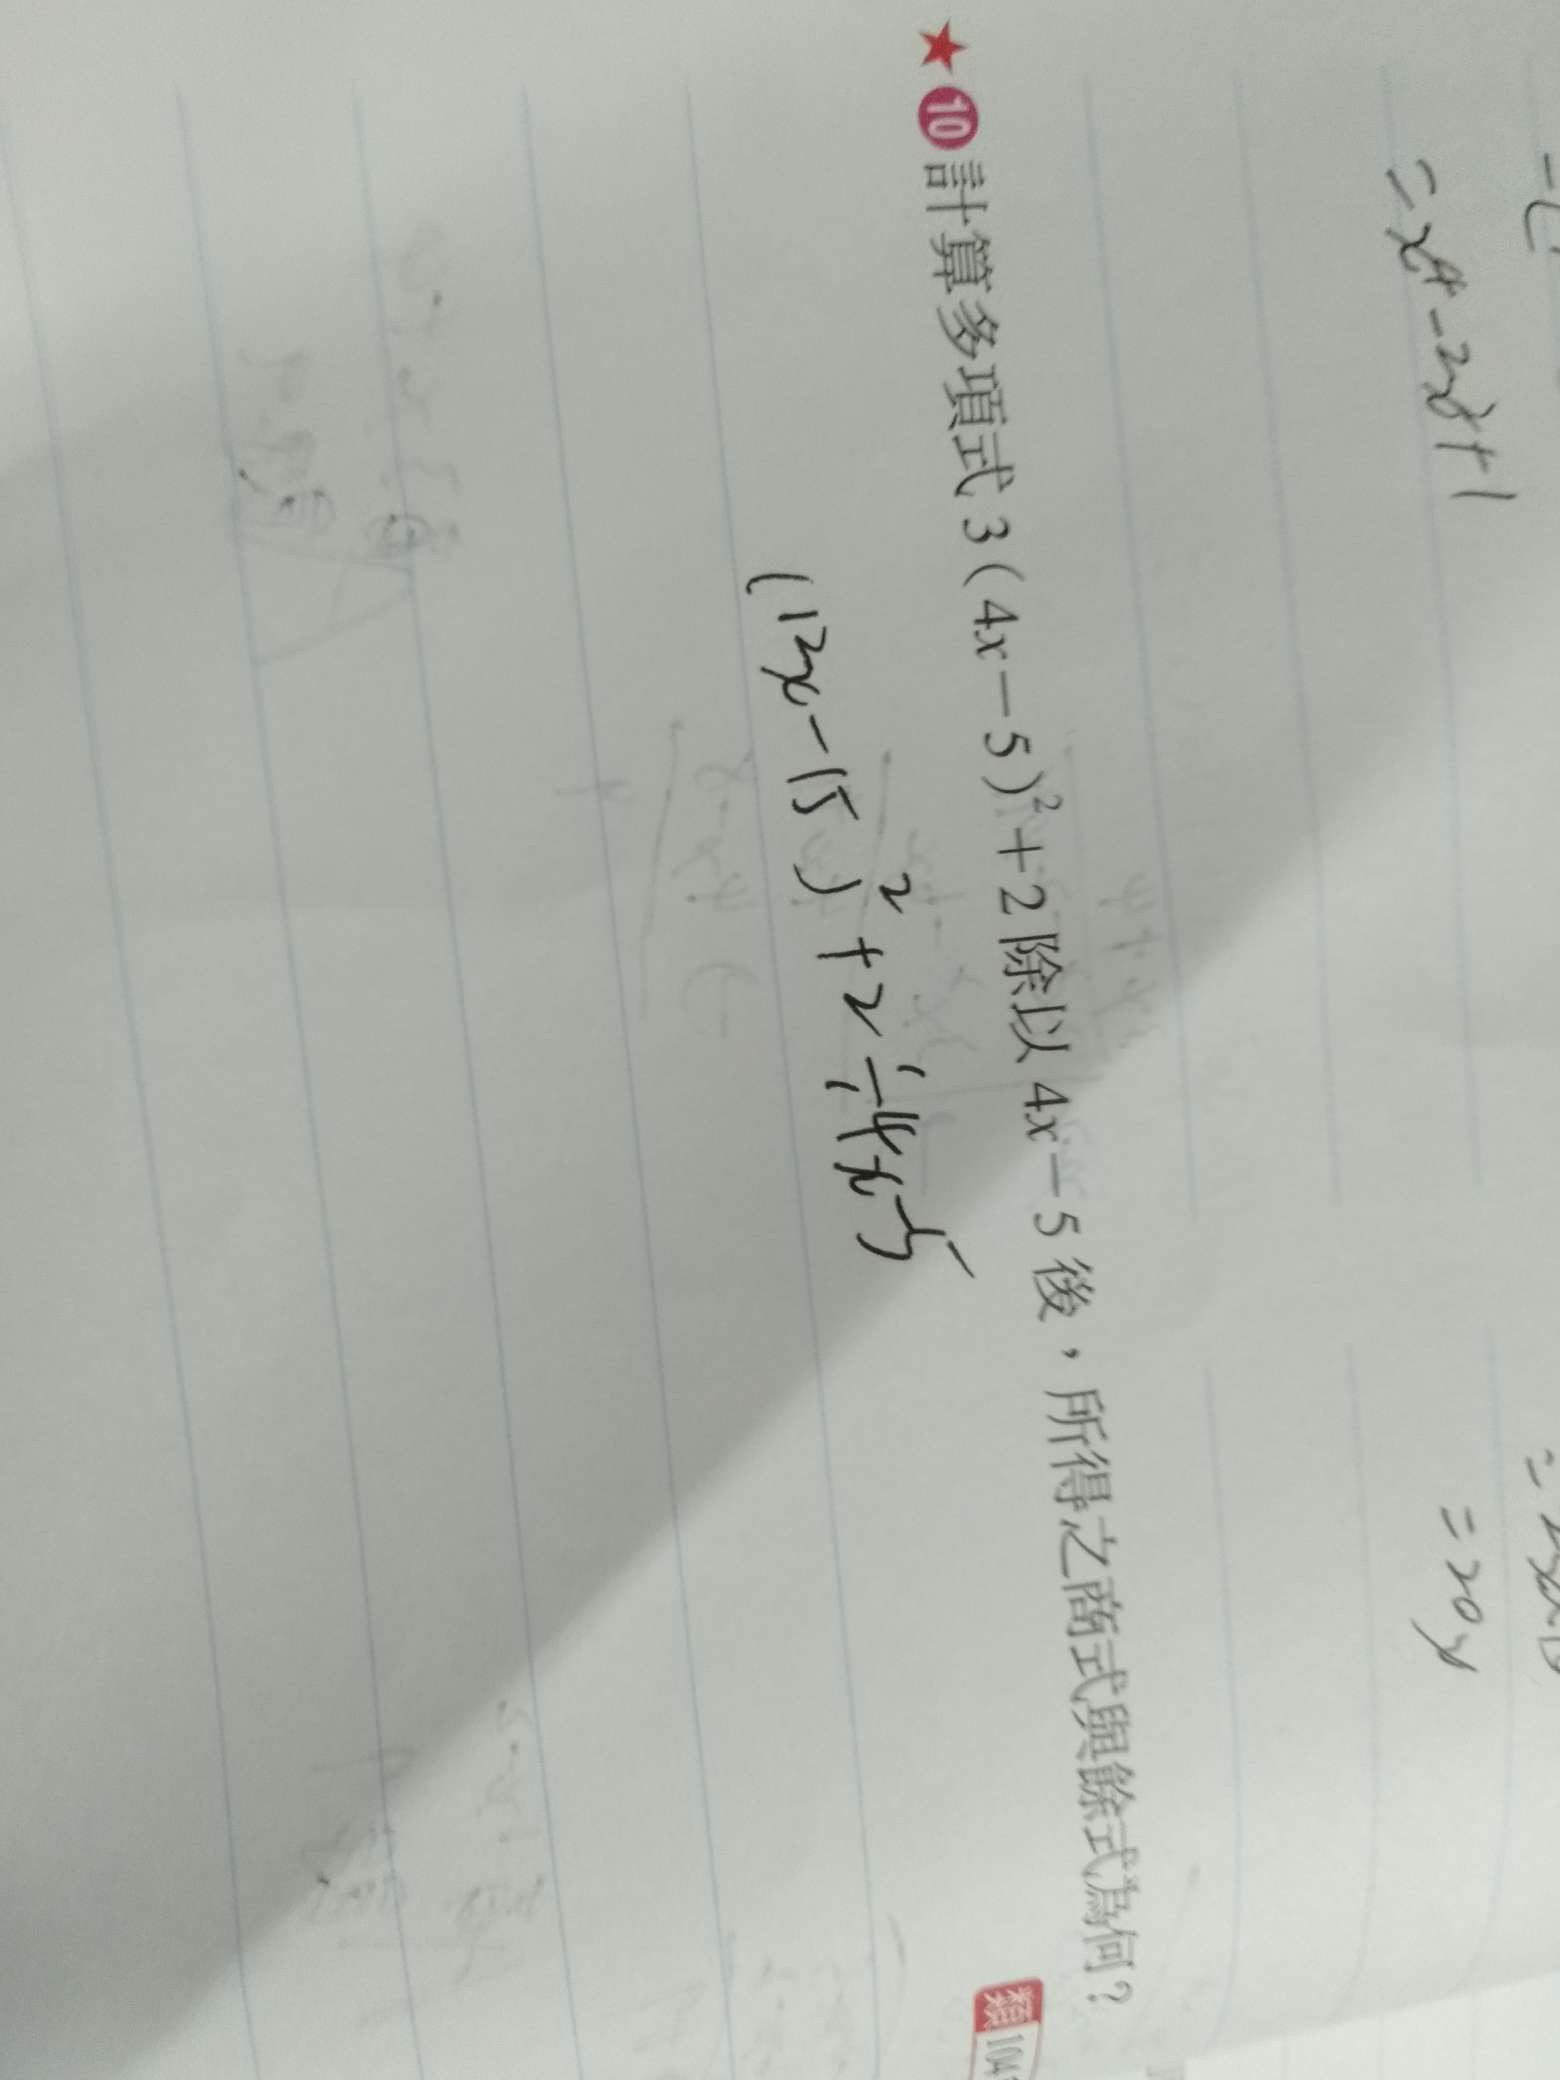 = x⁴ - 2x² + 1
= 20y
10 計算多項式 3(4x－5)²＋2 除以 4x－5 後，所得之商式與餘式為何？
類 104
(12x - 15)² + 2 ÷ 4x - 5